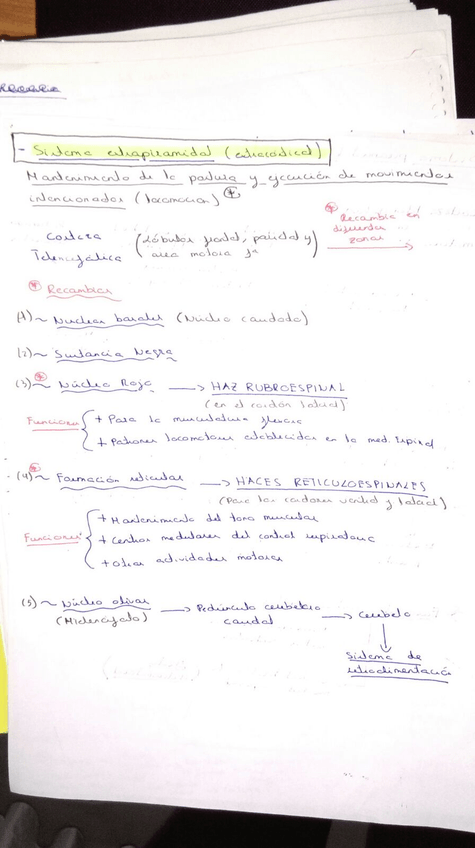 - Sistema extrapiramidal (extracortical)
Mantenimiento de la postura y ejecución de movimientos
intencionados (locomoción)
Corteza
Telencefálica
(Lóbulos frontal, parietal y
área motora 1ª)
Recambia en
diferentes
zonas
Recambios
(1) ~ Nucleos basales (Núcleo caudado)
(2) ~ Sustancia Negra
(3) ~ Núcleo Rojo → HAZ RUBROESPINAL
(en el cordón lateral)
Funciones
+ Para la musculatura flexora
+ Patrones locomotores establecidos en la med. Espinal
(4) ~ Formación reticular → HACES RETICULOESPINALES
(Para los cordones ventral y lateral)
Funciones
+ Mantenimiento del tono muscular
+ Centros medulares del control respiratorio
+ Otras actividades motoras
(5) ~ Núcleo olivar → Pedúnculo cerebeloso → Cerebelo
(Mielencéfalo) caudal
Sistema de
retroalimentación